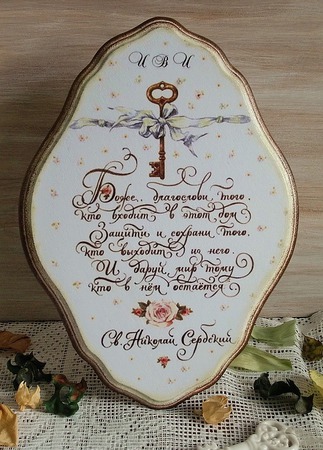 И В И
Боже, благослови того,
кто входит в этот дом
Защити и сохрани того,
кто выходит из него.
И даруй мир тому
кто в нём остаётся
Св. Николай Сербский